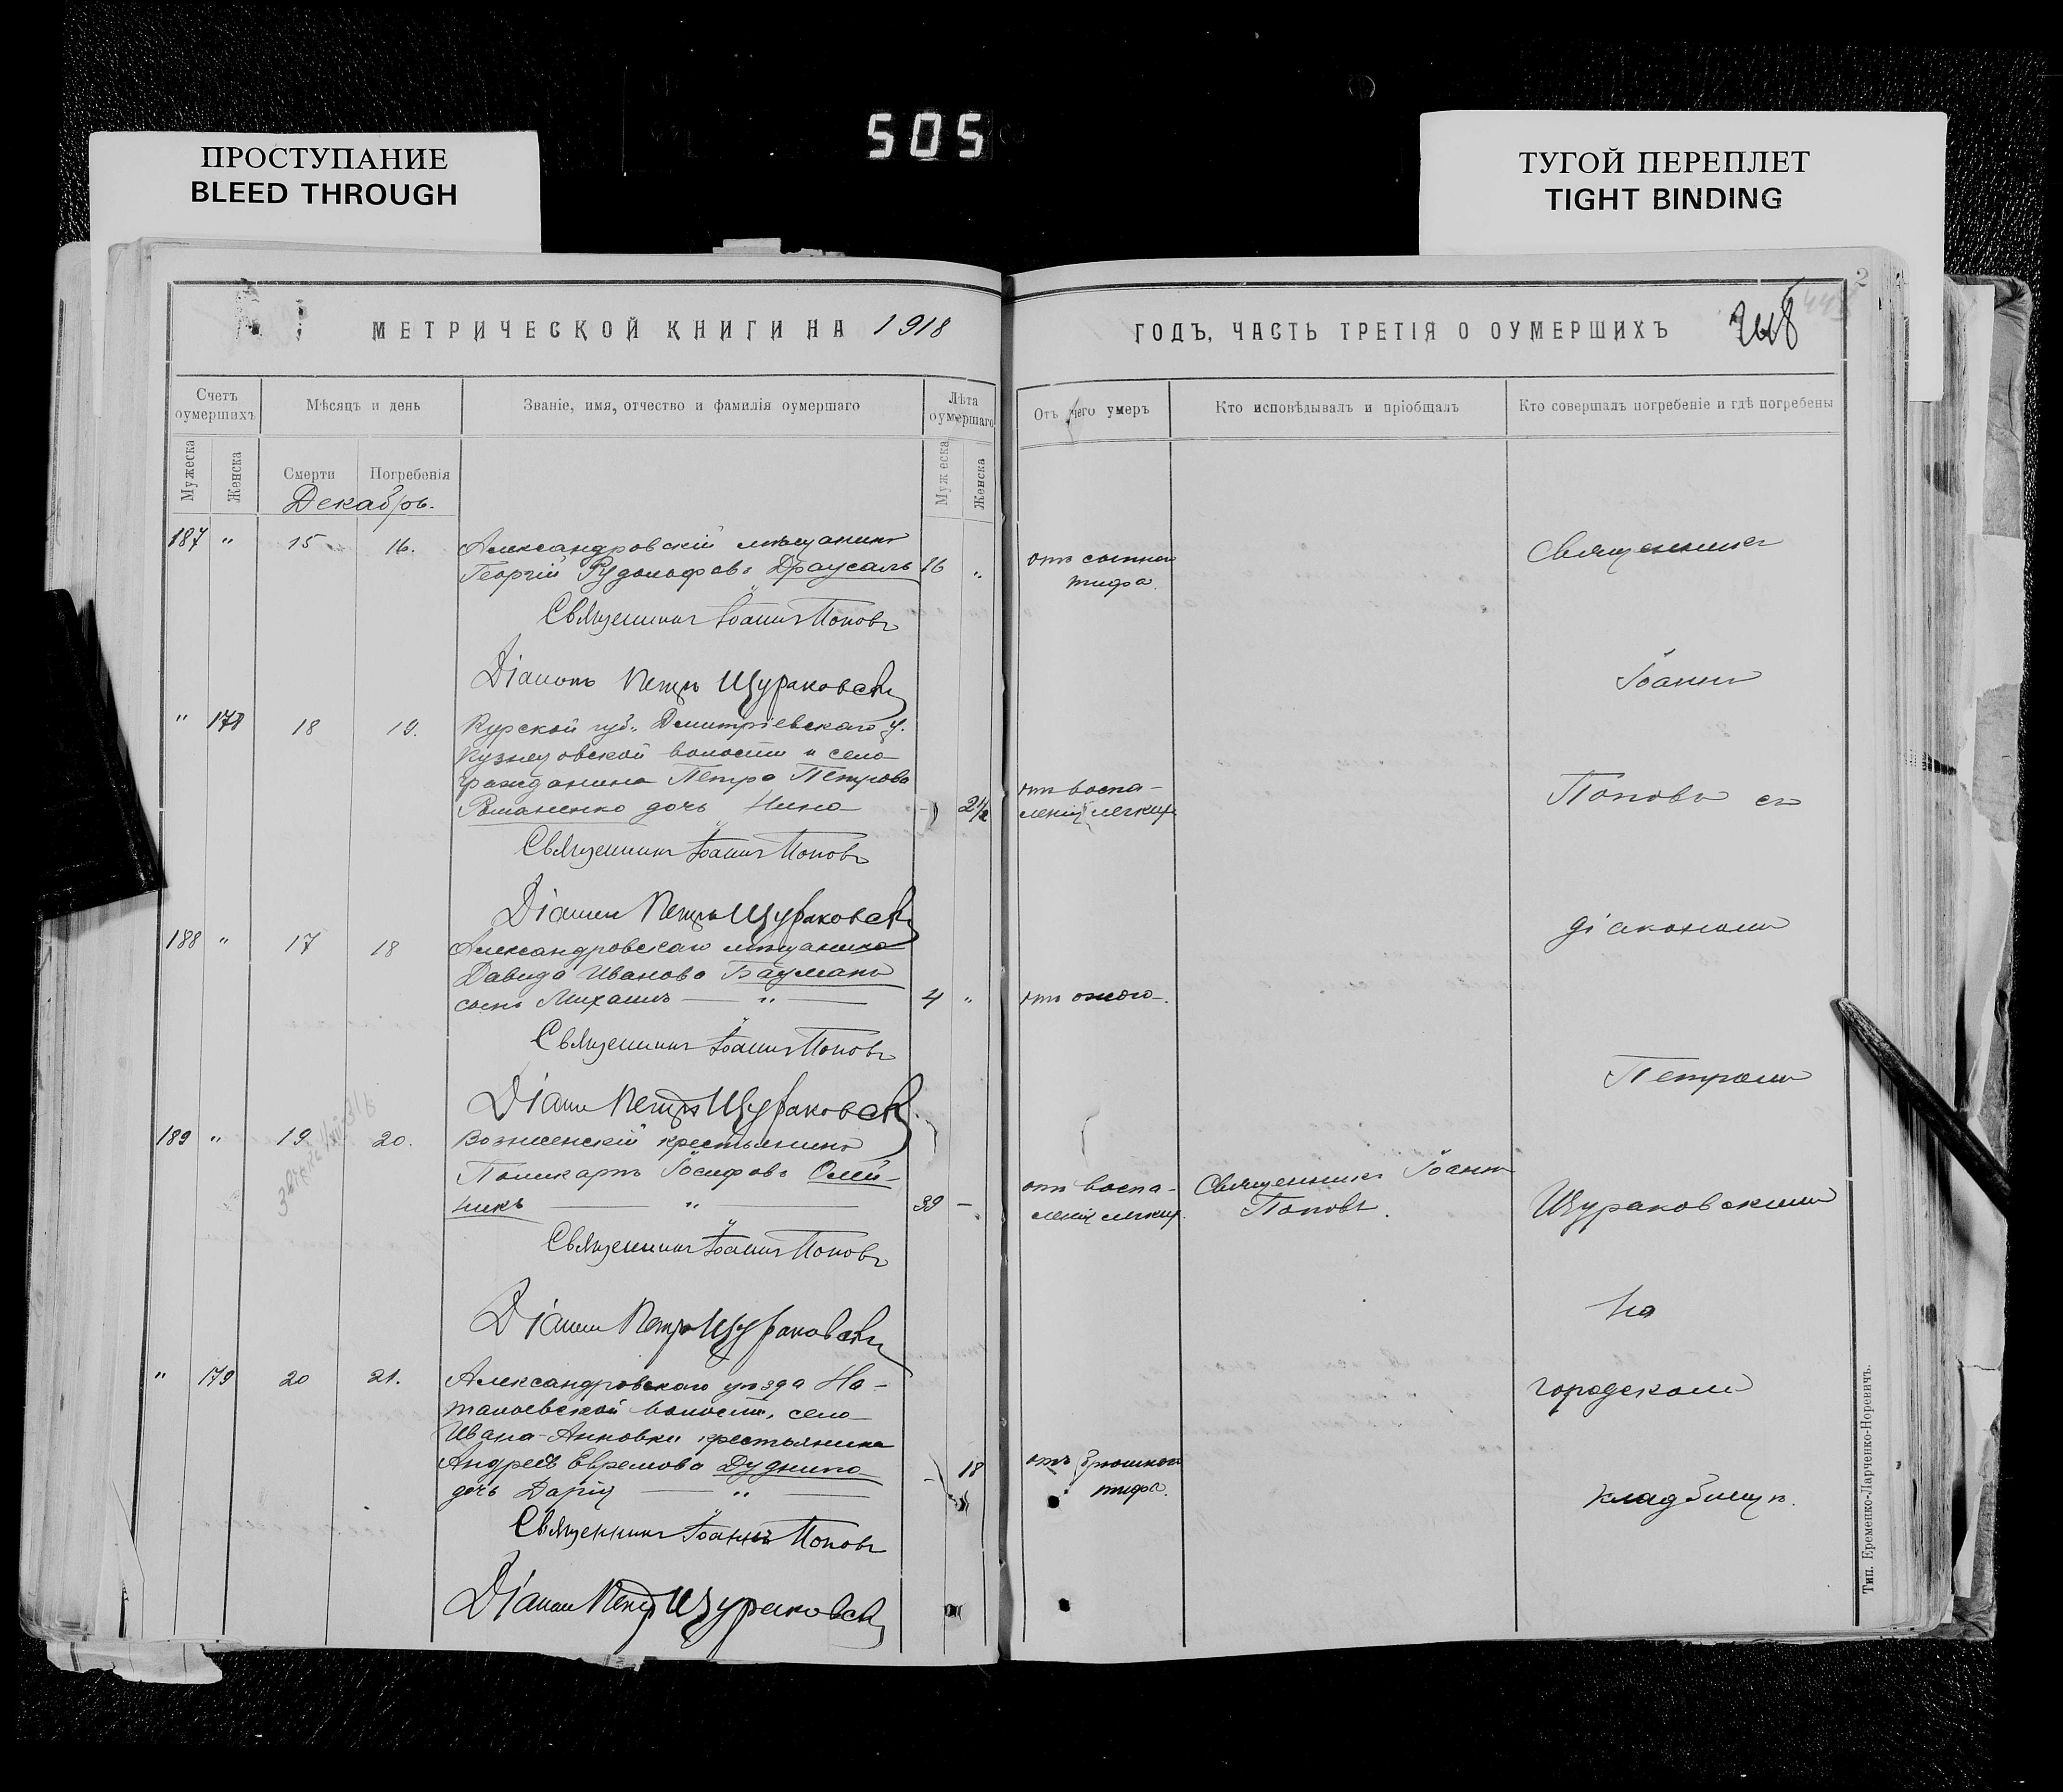 505
ПРОСТУПАНИЕ
BLEED THROUGH
ТУГОЙ ПЕРЕПЛЕТ
TIGHT BINDING
МЕТРИЧЕСКОЙ КНИГИ НА 1918
ГОДЪ, ЧАСТЬ ТРЕТІЯ О ОУМЕРШИХЪ
248
Счетъ оумершихъ
Мѣсяцъ и день
Званіе, имя, отчество и фамилія оумершаго
Лѣта оумершаго
Отъ чего умеръ
Кто исповѣдывалъ и пріобщалъ
Кто совершалъ погребеніе и гдѣ погребены
Мужеска
Женска
Смерти
Погребенія
Мужеска
Женска
Декабрь.
187 " 15 16.
Александровскій мѣщанинъ
Георгій Рудольфовъ Драусаль 16 "
отъ сыпного
тифа.
Священникъ Іоаннъ Поповъ
Діаконъ Петръ Щураковскій
" 178 18 19.
Курской губ. Дмитріевскаго у.
Кузнецовской волости и села
гражданина Петра Петрова
Романенко дочь Нина - 2 1/2
отъ воспа-
ленія легкихъ
Священникъ Іоаннъ Поповъ
Діаконъ Петръ Щураковскій
188 " 17 18
Александровскаго мѣщанина
Давида Иванова Бауманъ
сынъ Михаилъ — " — 4 "
отъ ожога.
Священникъ Іоаннъ Поповъ
Діаконъ Петръ Щураковскій
189 " 19 20.
Вознесенскій крестьянинъ
Поликарпъ Іосифовъ Олей-
никъ — " — 39 -
отъ воспа-
ленія легкихъ.
Священникъ Іоаннъ
Поповъ.
Священникъ Іоаннъ Поповъ
Діаконъ Петръ Щураковскій
" 179 20 21.
Александровскаго уѣзда На-
талоевской волости, села
Ивано-Анновки крестьянина
Андрея Евремова Дудника
дочь Дарія — " — - 18
отъ брюшного
тифа.
Священникъ Іоаннъ Поповъ
Діаконъ Петръ Щураковскій
Священникъ
Іоаннъ
Поповъ съ
діакономъ
Петромъ
Щураковскимъ
на
городскомъ
кладбищѣ.
Тип. Еременко-Ларченко-Норевичъ.